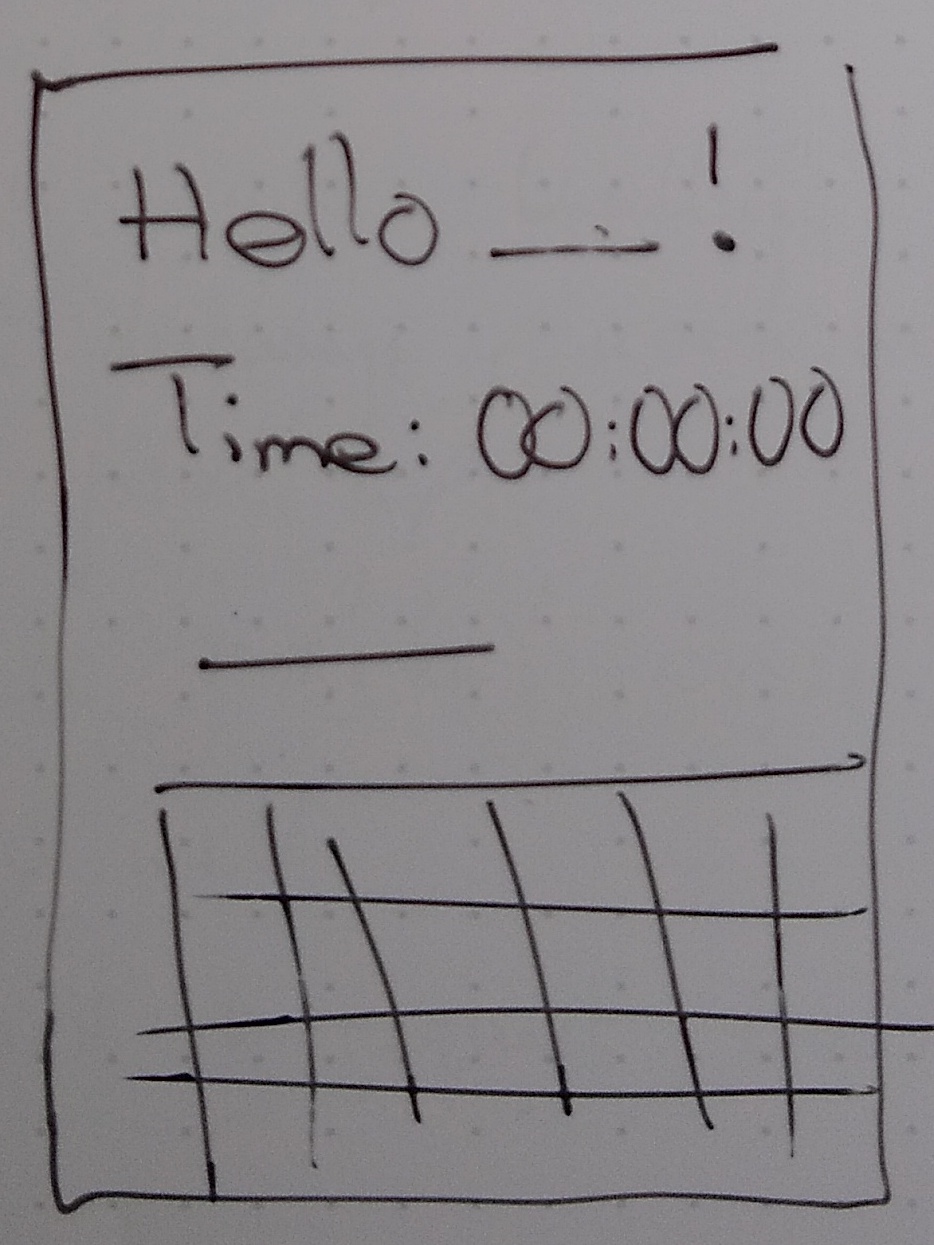 Hello __!
Time: 00:00:00